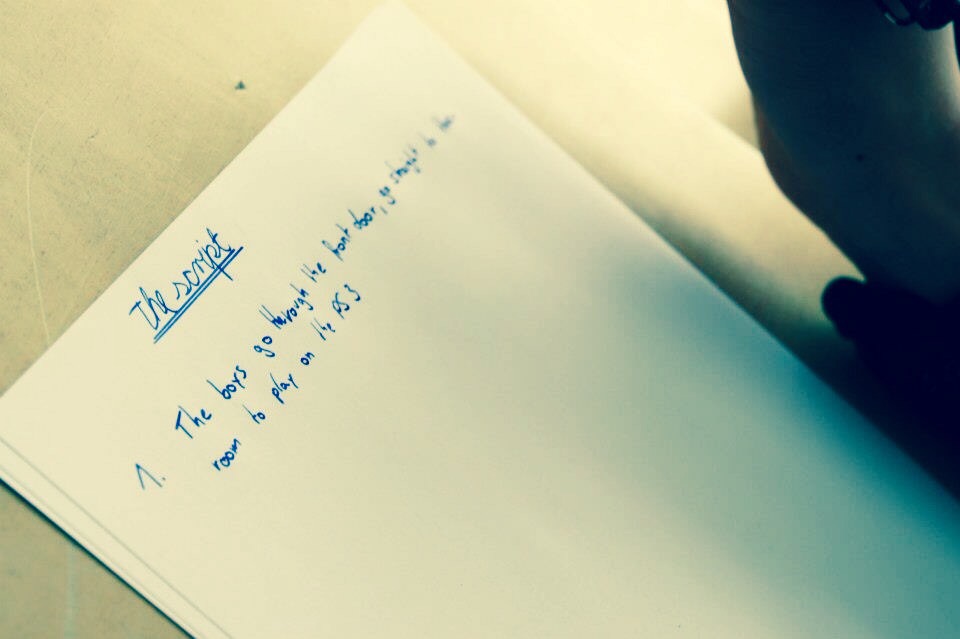 the script
1. The boys go therough the front door, go straight to the
room to play on the PS3